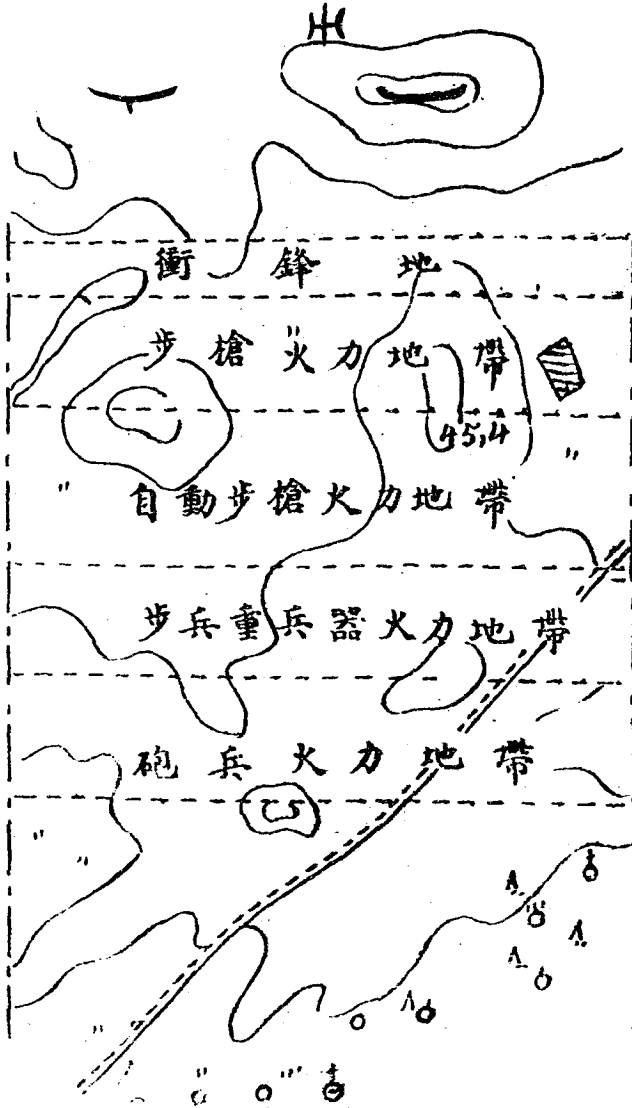 衝鋒地
步槍火力地帶
45,4
自動步槍火力地帶
步兵重兵器火力地帶
砲兵火力地帶